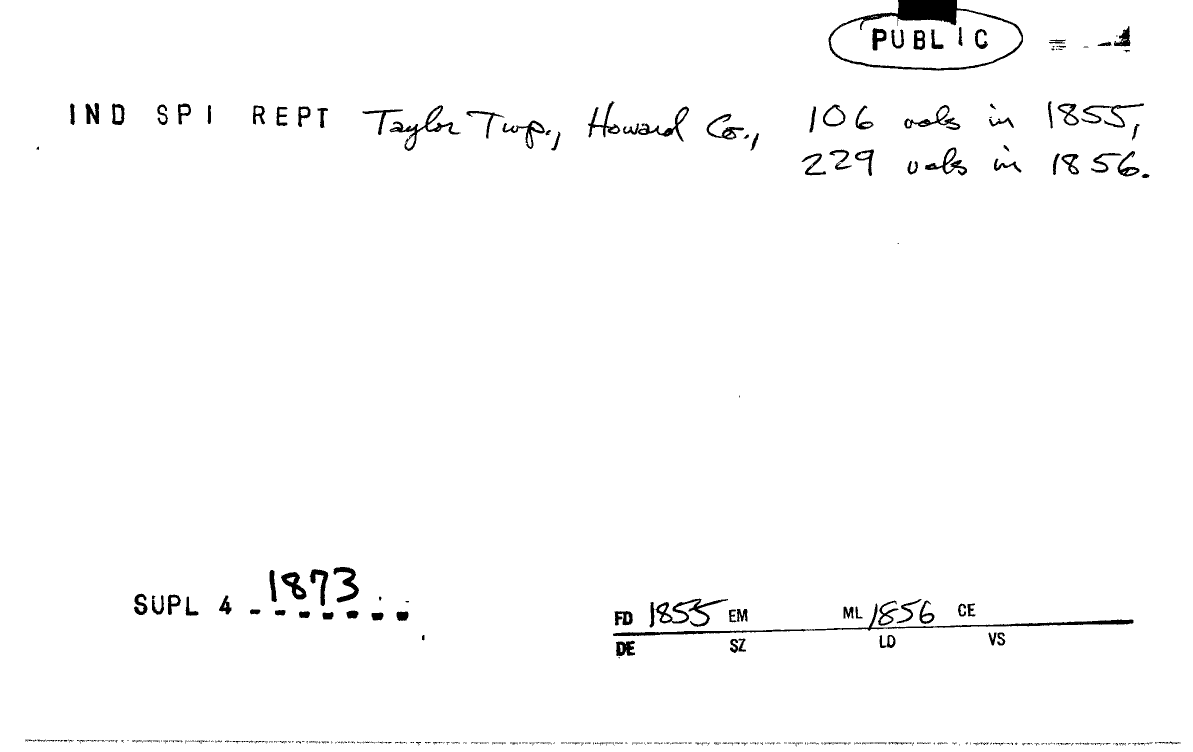 PUBLIC
IND SPI REPT Taylor Twp., Howard Co., 106 vols in 1855,
229 vols in 1856.
SUPL 4 1873
FD 1855 EM ML 1856 CE
DE SZ LD VS